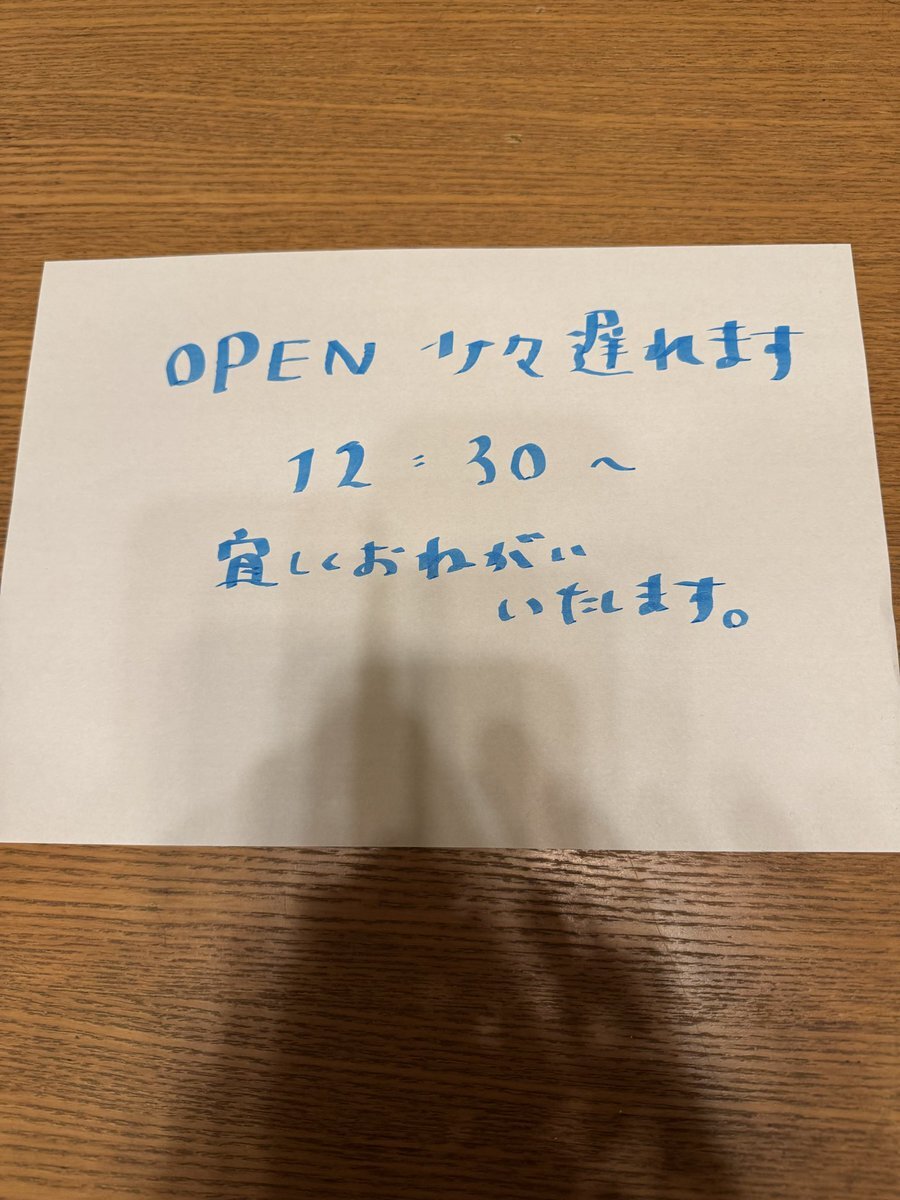 OPEN 少々遅れます
12:30〜
宜しくおねがい
いたします。